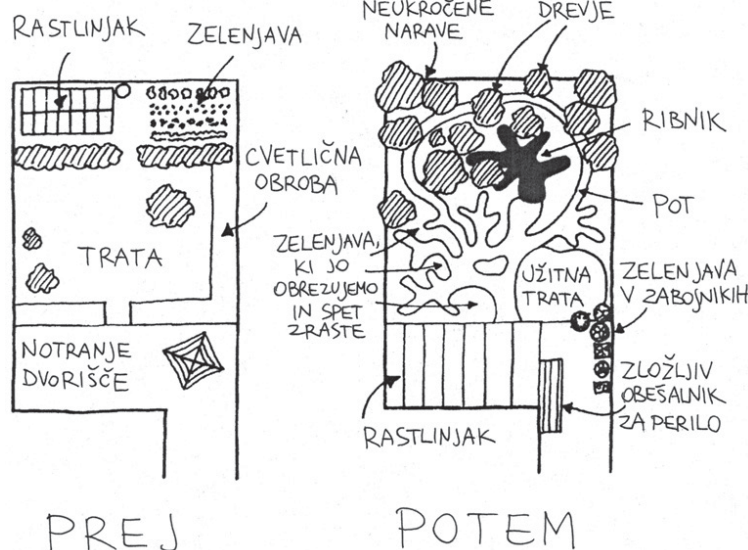 RASTLINJAK
ZELENJAVA
CVETLIČNA
OBROBA
TRATA
NOTRANJE
DVORIŠČE
PREJ
NEUKROČENE
NARAVE
DREVJE
RIBNIK
POT
ZELENJAVA,
KI JO
OBREZUJEMO
IN SPET
ZRASTE
UŽITNA
TRATA
ZELENJAVA
V ZABOJNIKIH
ZLOŽLJIV
OBEŠALNIK
ZA PERILO
RASTLINJAK
POTEM